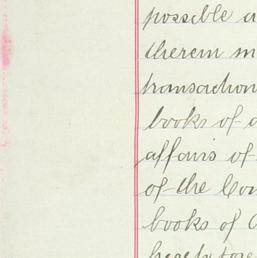 possible a
therein m
transaction
books of a
affairs of
of the Com
books of C
heretofore